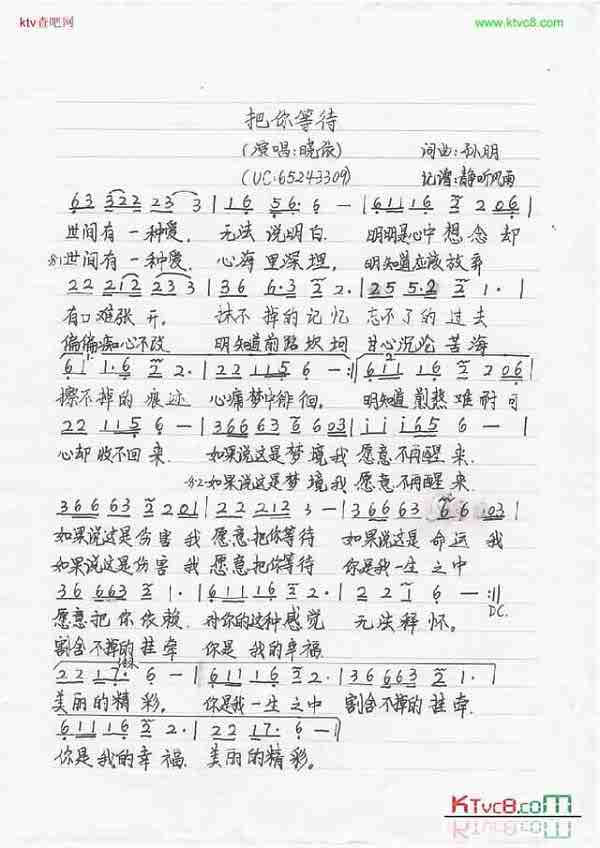 ktv查吧网
www.ktvc8.com
把你等待
(演唱:晓依) 词曲:孙明
(UC:65243309) 记谱:静听风雨
63 322 23 3 | 116 56· 6 — | 61116 2 206 |
世间有一种爱, 无法说明白. 明明是心中想念却
世间有一种爱. 心海里深埋, 明知道应该放弃
22 212 23 3 | 36 6·3 2 2· | 25 5·2 2 1· |
有口难张开, 抹不掉的记忆 忘不了的过去
偏偏痴心不改 明知道前路坎坷 甘心沉沦苦海
61 1·6 2 2· | 22 115 6 — :| 611 16 2 206 |
擦不掉的痕迹 心痛梦中徘徊. 明知道煎熬难耐可
22 115 6 — | 36663 6 603 | i i i65 6 — |
心却收不回来. 如果说这是梦境我愿意不再醒来.
如果说这是梦境我愿意不再醒来.
36663 2 201 | 22 2212 3 — | 36663 6 6 03 |
如果说这是伤害我愿意把你等待 如果说这是命运我
如果说这是伤害我愿意把你等待 你是我一生之中
36 663 2 1· | 61116 2 2· | 2 2 1 6 — :||
D.C.
愿意把你依赖. 对你的这种感觉 无法释怀.
割舍不掉的挂牵 你是我的幸福.
22 17· 6 — | 61116 2 2· | 36 663 2 1· |
美丽的精彩. 你是我一生之中 割舍不掉的挂牵.
61116 2 2· | 22 17· 6 — ||
你是我的幸福. 美丽的精彩.
KTvc8.com